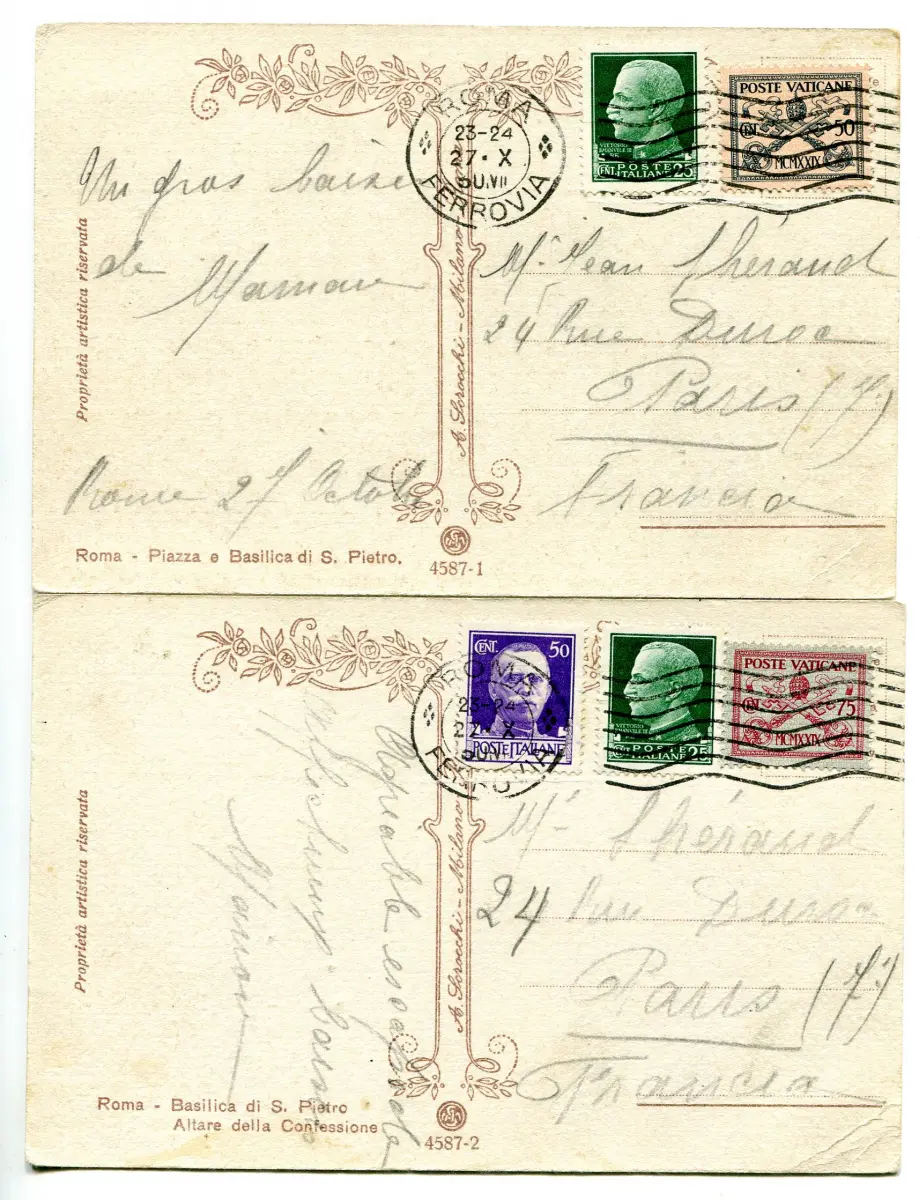 ROMA
23-24
27·X
FERROVIA
VITTORIO
EMANUELE III
POSTE
CENT. ITALIANE 25
POSTE VATICANE
CENT. 50
MCMXXIX
Un gros baise
de Maman
Rome 27 Octob
Proprietà artistica riservata
A. Scrocchi - Milano
Mr Jean Théraud
24 Rue Duroc
Paris (7e)
Francia
Roma - Piazza e Basilica di S. Pietro.
4587-1
ROMA
23-24
X
FERROVIA
CENT. 50
POSTE ITALIANE
VITTORIO
POSTE
ITALIANE 25
POSTE VATICANE
CENT. 75
MCMXXIX
Agréable escapade
Maman
Proprietà artistica riservata
A. Scrocchi - Milano
Mr Théraud
24 Rue Duroc
Paris (7e)
Francia
Roma - Basilica di S. Pietro
Altare della Confessione
4587-2